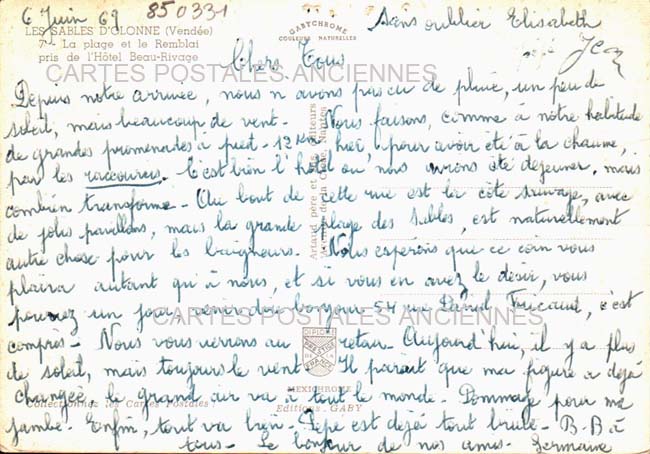 6 Juin 69 850331
Sans oublier Elisabeth
LES SABLES D'OLONNE (Vendée)
7 - La plage et le Remblai
pris de l'Hôtel Beau-Rivage
GABYCHROME
COULEURS NATURELLES
Jean
Chers Tous
CARTES POSTALES ANCIENNES
Depuis notre arrivée, nous n'avons pas eu de pluie, un peu de
soleil, mais beaucoup de vent - Nous faisons, comme à notre habitude
de grandes promenades à pied - 12 Km hier, pour avoir été à la chaume,
par les raccourcis. C'est bien l'hôtel où nous avions été déjeuner, mais
combien transformé - Au bout de cette rue est la côte sauvage, avec
de jolis pavillons, mais la grande plage des Sables, est naturellement
autre chose pour les baigneurs. Nous espérons que ce coin vous
plaira autant qu'à nous, et si vous en avez le désir, vous
pourrez un jour, venir dire bonjour 54 rue Foucaud, c'est
CARTES POSTALES ANCIENNES
compris - Nous vous verrons au retour - Aujourd'hui, il y a plus
de soleil, mais toujours le vent - Il paraît que ma figure a déjà
changée, le grand air va à tout le monde. Dommage pour ma
jambe. Enfin, tout va bien - Pépé est déjà tout brulé - B-B à
tous - Le bonjour de nos amis - Germaine
Artaud père et fils, Editeurs
DIPLOME
PRESTIGE
DE LA
FRANCE
MEXICHROME
Collectionnez les Cartes Postales
Editions GABY